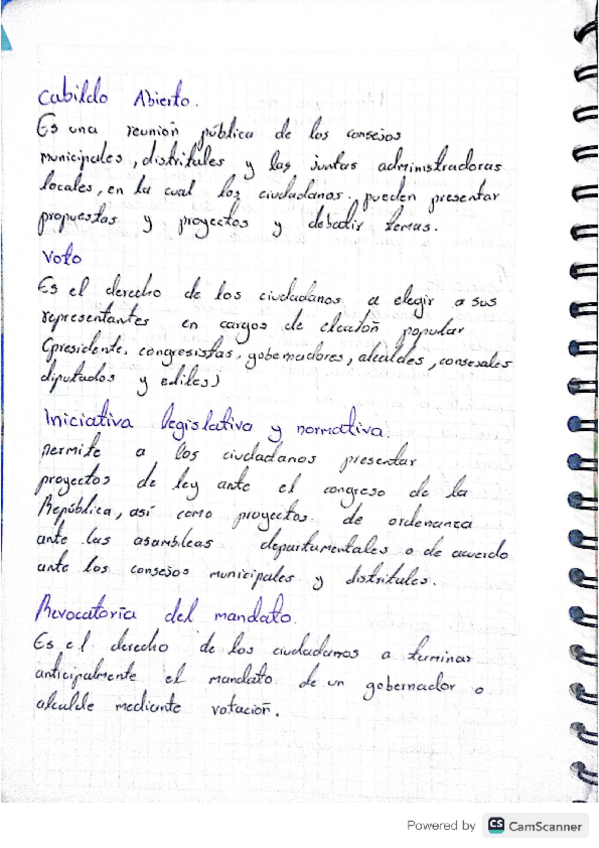 Cabildo Abierto.
Es una reunión pública de los consejos
municipales, distritales y las juntas administradoras
locales, en la cual los ciudadanos. pueden presentar
propuestas y proyectos y debatir temas.
Voto
Es el derecho de los ciudadanos a elegir a sus
representantes en cargos de elección popular
(presidente, congresistas, gobernadores, alcaldes, consejales
diputados y ediles)
Iniciativa legislativa y normativa.
permite a los ciudadanos presentar
proyectos de ley ante el congreso de la
República, así como proyectos. de ordenanza
ante las asambleas departamentales o de acuerdo
ante los consejos municipales y distritales.
Revocatoria del mandato.
Es el derecho de los ciudadanos a terminar
anticipalmente el mandato de un gobernador o
alcalde mediante votación.
Powered by CS CamScanner